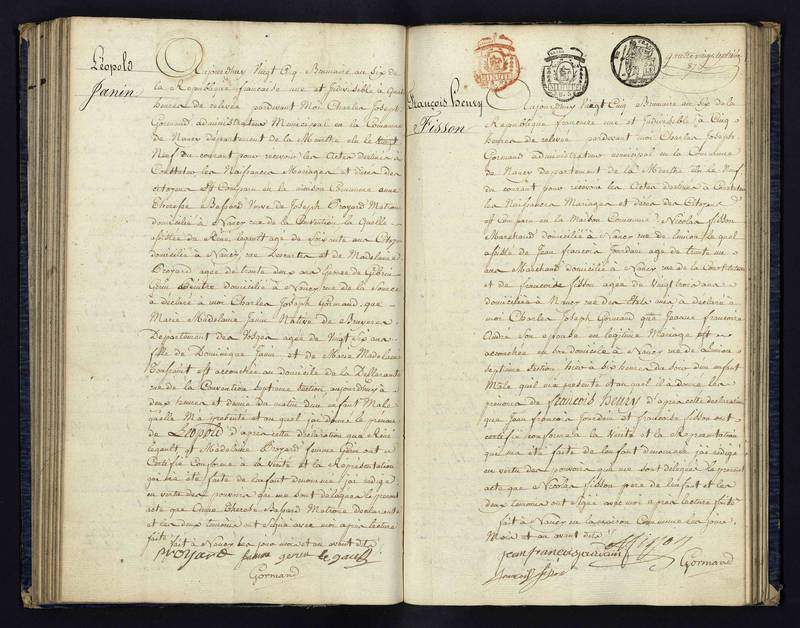 Léopold
Janin
Aujourdhuy Vingt Cinq Brumaire an Six de
la République francaise une et Indivisible à quatre
heures de relevée pardevant Moi Charles Joseph
Gormand administrateur Municipal en la Commune
de Nancy département de la Meurthe elu le
Neuf du courant pour recevoir les Actes destinés à
Constater les Naissances Mariages et décès des
citoyens est Comparu en la maison Commune anne
Therese Bassard Veuve de Joseph Proyard Matrone
domiciliée à Nancy rue de la Convention la quelle
assistée de René legault agé de Soixante ans Citoyen
domicilié à Nancy rue et de Madelaine
Proyard agée de trente deux ans
domiciliée à Nancy rue de la Source
à déclaré à moi Charles Joseph Gormand que
Marie Madelaine Janin Native de Bruyeres
Département des Vosges agée de Vingt Six ans
fille de Dominique Janin et de Marie Madelaine
est accouchée au domicile de la Déclarante
rue de la Convention Septieme Section aujourdhuy à
deux heures et demie du matin d'un enfant Male
quelle M'a présenté et au quel jai donné le prénom
de Léopold d'après cette déclaration que René
legault et Madelaine Proyard femme Gérin ont
Certifié Conforme à la Vérité et la Représentation
qui m'a été faite de lenfant denommé jai rédigé
en vertu des pouvoirs qui me sont délégués le présent
acte que Anne Therese Bassard Matrone déclarante
et les deux témoins ont Signé avec moi après lecture
faite fait à Nancy les jour mois et an avant dits
proyard femme gerin legault
Gormand
François Henry
Fisson
Aujourdhuy Vingt Cinq Brumaire an Six de la
République francaise une et Indivisible à Cinq
heures de relevée pardevant moi Charles Joseph
Gormand administrateur municipal en la Commune
de Nancy Département de la Meurthe elu le Neuf
du courant pour recevoir les Actes destinés à Constater
les Naissances Mariages et décès des Citoyens
est Comparu en la Maison Commune Nicolas fisson
Marchand domicilié à Nancy rue de lunion le quel
assisté de Jean francois Jourdain agé de trente un
ans Marchand domicilié à Nancy rue de la Constitution
et de francoise fisson agée de Vingt trois ans
domiciliée à Nancy rue des à déclaré à
moi Charles Joseph Gormand que Jeanne francoise
André Son epouse en légitime Mariage est
accouchée en Son domicile à Nancy rue de lunion
septieme Section hier à Six heures du Soir d'un enfant
Male quil m'a présenté et au quel il a donné les
prénoms de francois Henry d'après cette déclaration
que Jean francois Jourdain et francoise fisson ont
certifié conforme à la Verité et la Représentation
qui m'a été faite de lenfant denommé jai rédigé
en vertu des pouvoirs qui me sont délégués le présent
acte que Nicolas fisson pere de lenfant et les
deux témoins ont Signé avec moi après lecture faite
fait à Nancy en la maison Commune les jour
Mois et an avant dits
jean françois jourdain fisson
françoise fisson Gormand